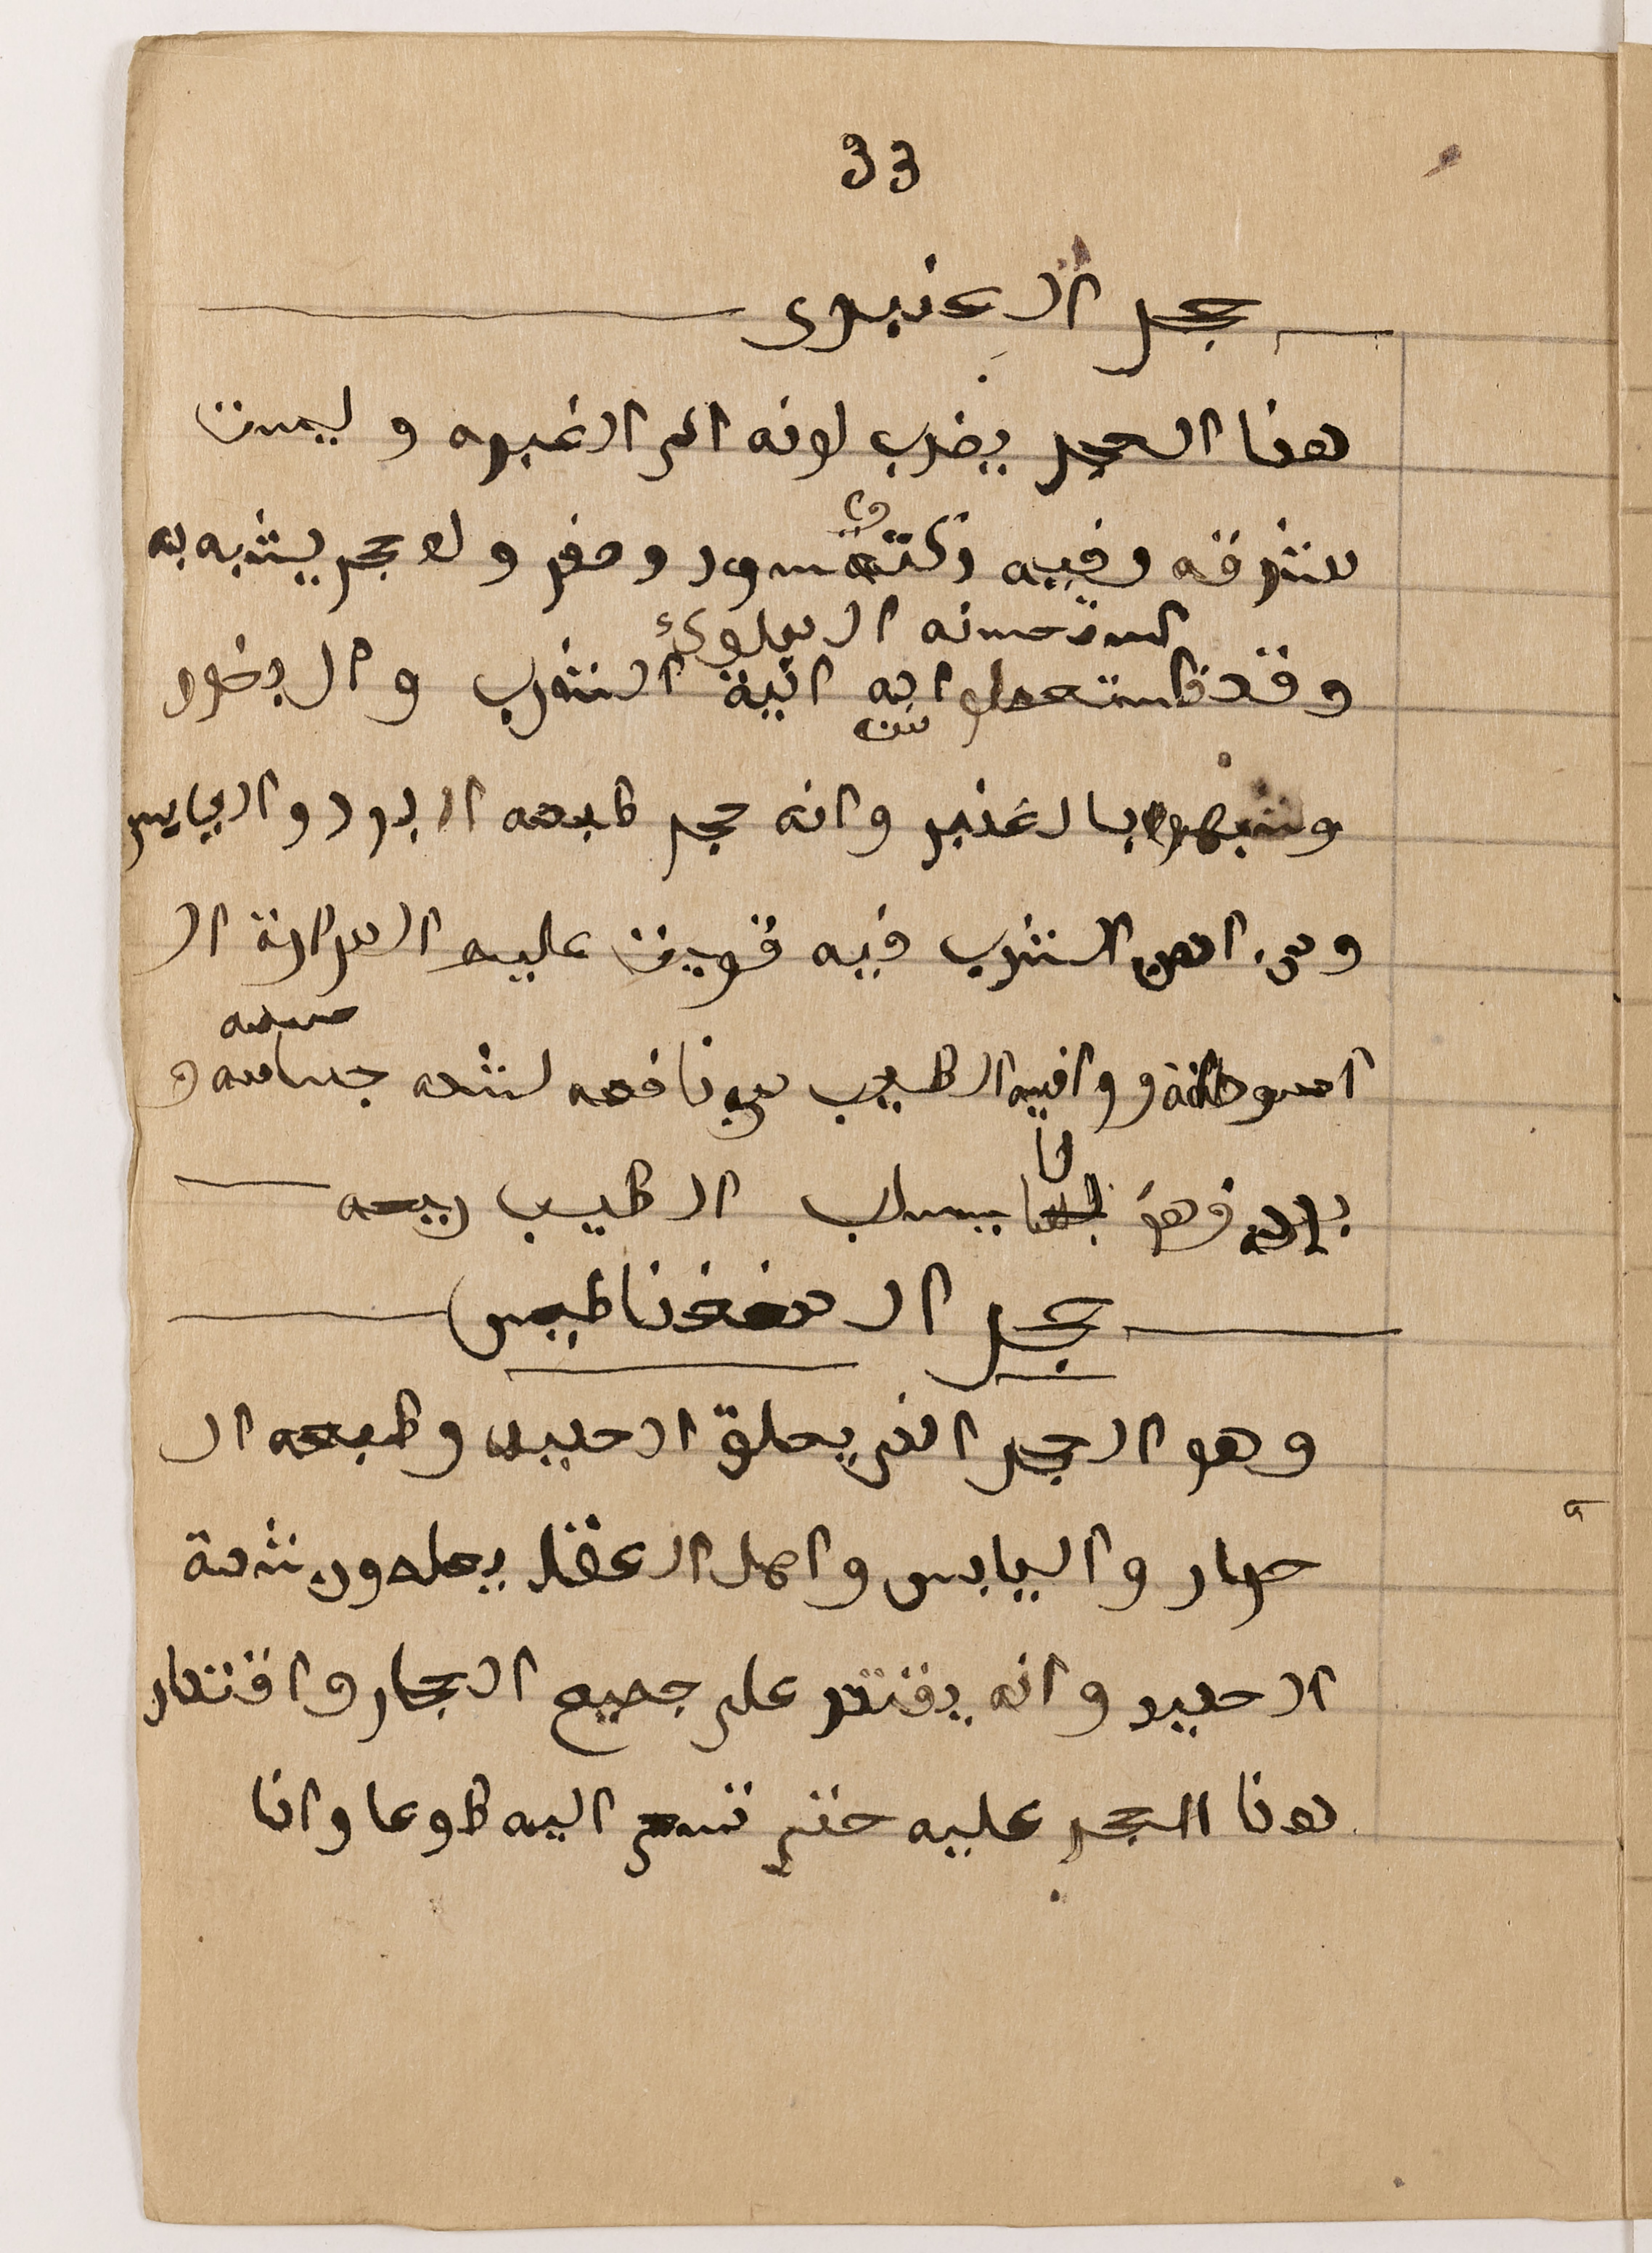 33
حجر العنبرى
هذا الحجر يضرب لونه الى الغبره وليست
مشرقه وفيه نكتة سود وصفر ولا حجر يشبه به
استحسنه الملوك
وقد استعملوا به انية الشرب والبخور
وشبهوه بالعنبر وانه حجر طبعه البرد واليابس
ومن ادمن الشرب فيه قويت عليه المرارة ال
اسوطة و وانيه الطيب من نافعه لشده جسامته و
برده فهو لا يسلب الطيب ريحه
حجر المغناطيس
وهو الحجر الذى يعلق الحديد وطبعه ال
حرار واليابس واهل العقل يعلمون شدة
الحديد وانه يقتدر على جميع الحجار واقتدار
هذا الحجر عليه حتى تسعى اليه طوعا وانا